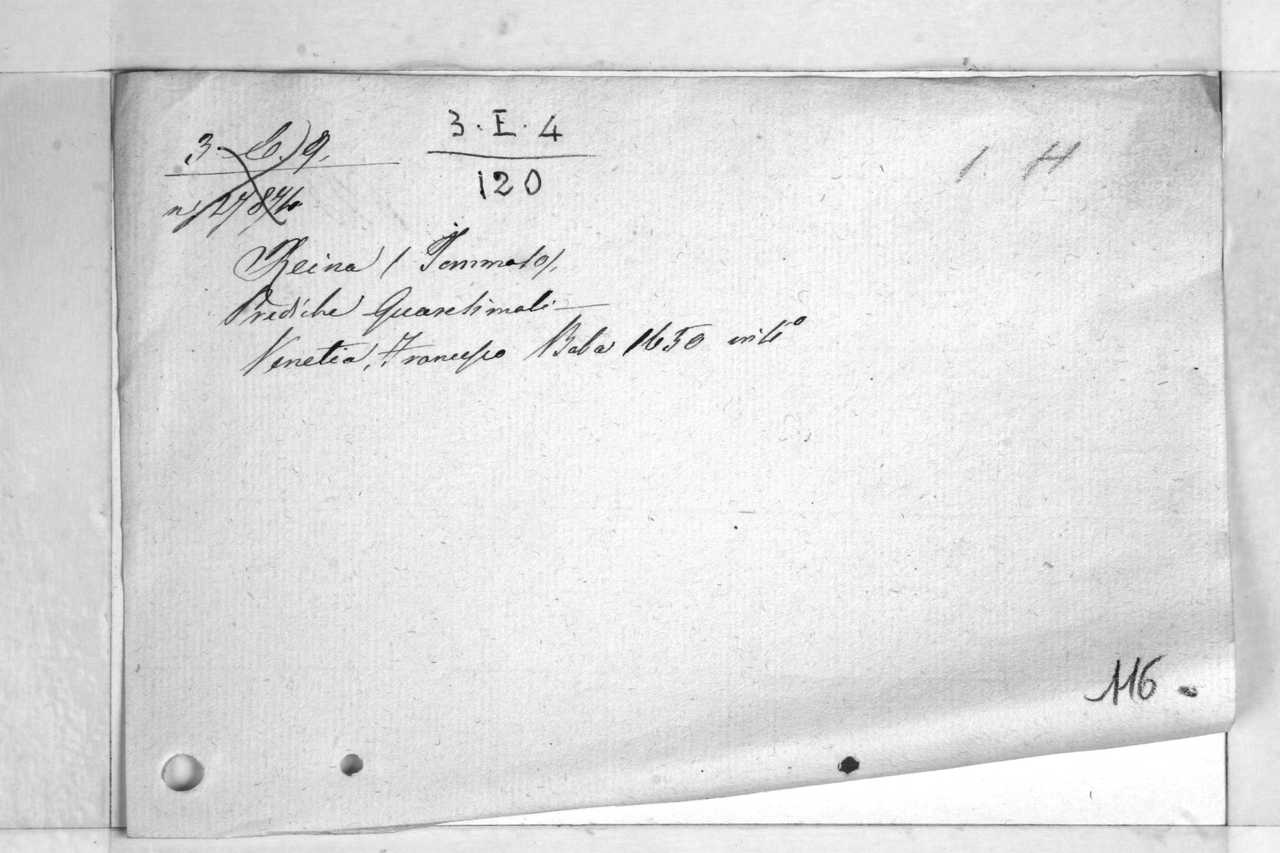 3. C. 9.
3. E. 4
120
n, 27874
1. H
Reina (Tommaso).
Prediche Quaresimali
Venetia, Francesco Baba 1650 in 4°
116